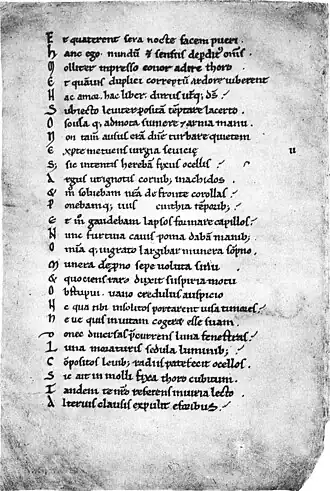 E t quaterent sera nocte facem pueri.
h anc ego. nundū & sensus depditꝰ om̄s
M olliter inpresso conor adire thoro
E t q̄uis duplici correptū ardore iuberent
H ac amor. hac liber. durus utq̨. ds̄.
S ubiecto leuiter positā teptare lacerto
O scula q̨ admota sumere & arma manu.
N on tam̄ ausus erā dn̄e turbare quietem
E xpte metuens iurgia seuicie
S; sic intentis herebā fixus ocellis
A rgus ut ignotis cornib; inachidos.
& m̊ soluebam nr̄a de fronte corollas
P onebamq; tuis cinthia tēporib;
E t m̊ gaudebam lapsos formare capillos
N unc furtiua cauis poma dabā manib;
O mia q̨ ingrato largibar munera sōpno.
M unera de pno sepe uoluta sinu
& quociens raro duxit suspiria motu
O bstupui. uano credulus auspicio
N e qua tibi insolitos portarent uisa timores.
N e ue quis inuitam cogeret esse suam.
D onec diuersas p̄currens luna fenestras.
L una moraturis sedula luminib;
C ōpositos leuib; radiis patefecit ocellos.
S ic ait in molli fixa thoro cubitum.
T andem te nr̄o referens iniuria lecto
A lterius clausis expulit e foribus.